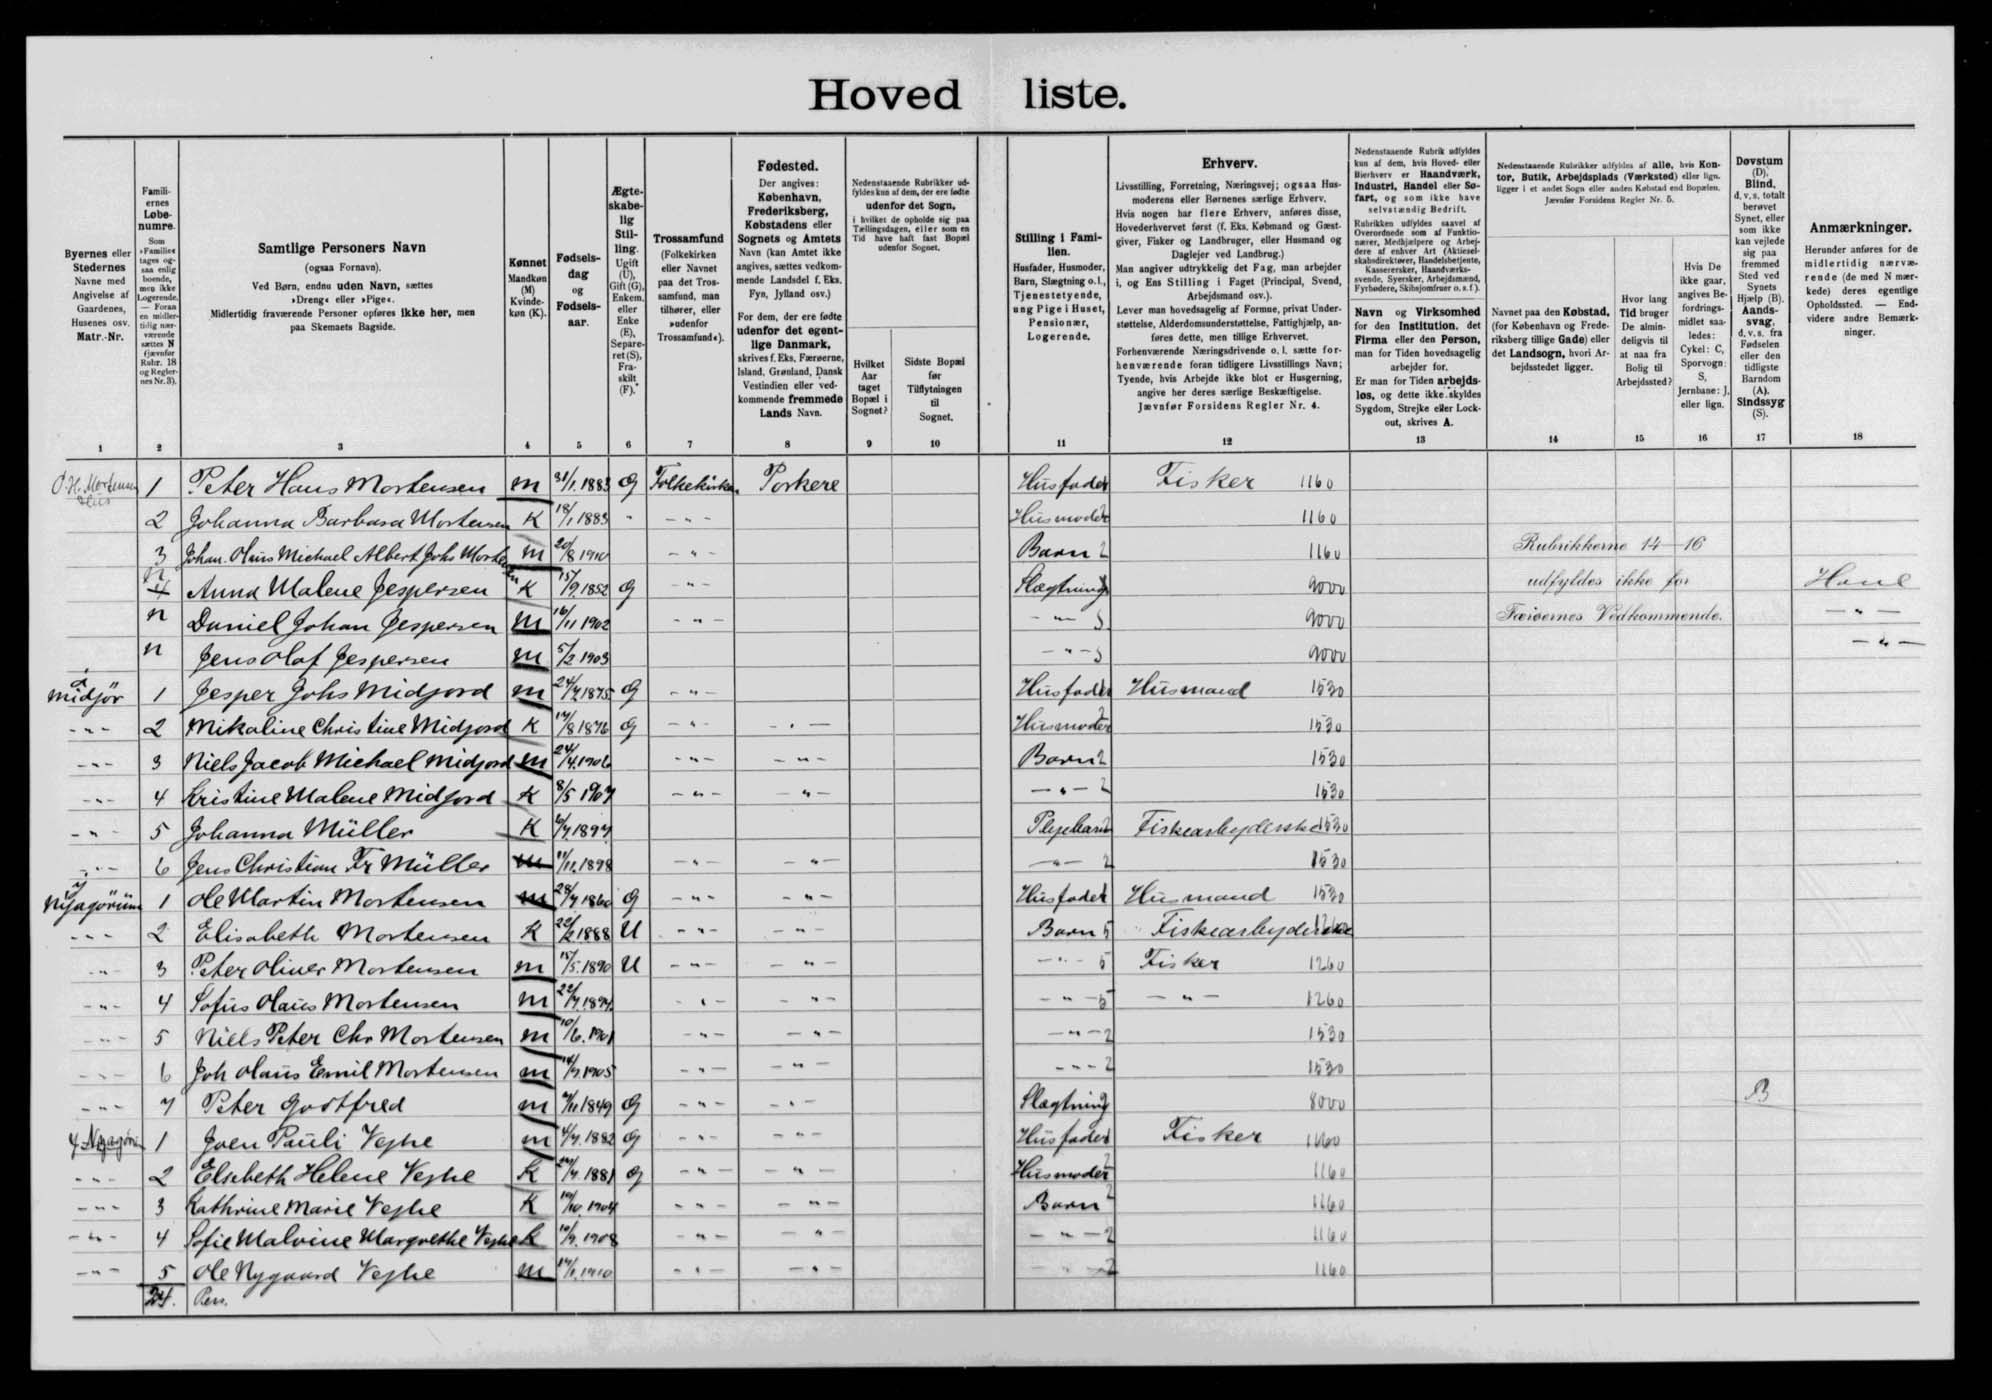 Hoved liste.
Byernes eller Stedernes Navne med Angivelse af Gaardenes, Husenes osv. Matr.-Nr.
Familiernes Løbenumre. Som »Familie« tages ogsaa enlig boende, men ikke Logerende. — Foran en midlertidig nærværende sættes N (jævnfør Rubr. 18 og Reglernes Nr. 3).
Samtlige Personers Navn (ogsaa Fornavn). Ved Børn, endnu uden Navn, sættes »Dreng« eller »Pige«. Midlertidig fraværende Personer opføres ikke her, men paa Skemaets Bagside.
Kønnet Mandkøn (M) Kvindekøn (K).
Fødselsdag og Fødselsaar.
Ægteskabelig Stilling. Ugift (U), Gift (G), Enkem. eller Enke (E), Separeret (S), Fraskilt (F).
Trossamfund (Folkekirken eller Navnet paa det Trossamfund, man tilhører, eller »udenfor Trossamfund«).
Fødested. Der angives: København, Frederiksberg, Købstadens eller Sognets og Amtets Navn (kan Amtet ikke angives, sættes vedkommende Landsdel f. Eks. Fyn, Jylland osv.) For dem, der ere fødte udenfor det egentlige Danmark, skrives f. Eks. Færøerne, Island, Grønland, Dansk Vestindien eller vedkommende fremmede Lands Navn.
Nedenstaaende Rubrikker udfyldes kun af dem, der ere fødte udenfor det Sogn, i hvilket de opholde sig paa Tællingsdagen, eller som en Tid have haft fast Bopæl udenfor Sognet.
Hvilket Aar taget Bopæl i Sognet?
Sidste Bopæl før Tilflytningen til Sognet.
Stilling i Familien. Husfader, Husmoder, Barn, Slægtning o. l., Tjenestetyende, ung Pige i Huset, Pensionær, Logerende.
Erhverv. Livsstilling, Forretning, Næringsvej; ogsaa Husmoderens eller Børnenes særlige Erhverv. Hvis nogen har flere Erhverv, anføres disse, Hovederhvervet først (f. Eks. Købmand og Gæstgiver, Fisker og Landbruger, eller Husmand og Daglejer ved Landbrug.) Man angiver udtrykkelig det Fag, man arbejder i, og Ens Stilling i Faget (Principal, Svend, Arbejdsmand osv.). Lever man hovedsagelig af Formue, privat Understøttelse, Alderdomsunderstøttelse, Fattighjælp, anføres dette, men tillige Erhvervet. Forhenværende Næringsdrivende o. l. sætte forhenværende foran tidligere Livsstillings Navn; Tyende, hvis Arbejde ikke blot er Husgerning, angive her deres særlige Beskæftigelse. Jævnfør Forsidens Regler Nr. 4.
Nedenstaaende Rubrik udfyldes kun af dem, hvis Hoved- eller Bierhverv er Haandværk, Industri, Handel eller Søfart, og som ikke have selvstændig Bedrift. Rubrikken udfyldes saavel af Overordnede som af Funktionærer, Medhjælpere og Arbejdere af enhver Art (Aktieselskabsdirektører, Handelsbetjente, Kasserersker, Haandværkssvende, Syersker, Arbejdsmænd, Fyrbødere, Skibsjomfruer o. s. f.).
Navn og Virksomhed for den Institution, det Firma eller den Person, man for Tiden hovedsagelig arbejder for. Er man for Tiden arbejdsløs, og dette ikke skyldes Sygdom, Strejke eller Lockout, skrives A.
Nedenstaaende Rubrikker udfyldes af alle, hvis Kontor, Butik, Arbejdsplads (Værksted) eller lign. ligger i et andet Sogn eller anden Købstad end Bopælen. Jævnfør Forsidens Regler Nr. 5.
Navnet paa den Købstad, (for København og Frederiksberg tillige Gade) eller det Landsogn, hvori Arbejdsstedet ligger.
Hvor lang Tid bruger De almindeligvis til at naa fra Bolig til Arbejdssted?
Hvis De ikke gaar, angives Befordringsmidlet saaledes: Cykel: C, Sporvogn: S, Jernbane: J, eller lign.
Døvstum (D). Blind, d. v. s. totalt berøvet Synet, eller som ikke kan vejlede sig paa fremmed Sted ved Synets Hjælp (B). Aandssvag, d. v. s. fra Fødselen eller den tidligste Barndom (A). Sindssyg (S).
Anmærkninger. Herunder anføres for de midlertidig nærværende (de med N mærkede) deres egentlige Opholdssted. — Endvidere andre Bemærkninger.
1 2 3 4 5 6 7 8 9 10 11 12 13 14 15 16 17 18
P. H. Mortensen Hus 1 Peter Hans Mortensen m 31/1. 1883 G Folkekirken Porkere Husfader Fisker 1160
2 Johanna Barbara Mortensen K 18/1 1883 " — " — Husmoder 1160
3 Johan. Olaus Michael Albert Johs Mortensen m 20/8 1910 — " — Barn 2 1160 Rubrikkerne 14–16
n 4 Anna Malene Jespersen K 15/9. 1852 G — " — Slægtning 9000 udfyldes ikke for
n Daniel Johan Jespersen m 16/11 1902 — " — — " — 9000 Færøernes Vedkommende. — " —
n Jens Olaf Jespersen m 5/2 1903 — " — 9000 — " —
Midjör 1 Jesper Johs Midjord m 24/7. 1875 G — " — Husfader Husmand 1530
— " — 2 Mikaline Christine Midjord K 14/8 1876 G — " — — " — Husmoder 1530
— " — 3 Niels Jacob Michael Midjord m 24/4. 1906 — " — — " — Barn 2 1530
— " — 4 Kristine Malene Midjord K 8/5 1907 — " — — " — — " — 2 1530
— " — 5 Johanna Müller K 6/7. 1897 Plejebarn 1530
— " — 6 Jens Christian Fr Müller m 11/11. 1898 — " — — " — — " — 2 1530
Nyagörüm 1 Ole Martin Mortensen m 28/7 1860 G — " — — " — Husfader Husmand 1530
— " — 2 Elisabeth Mortensen K 22/2 1888 U — " — — " — Barn 5 1260
— " — 3 Peter Oliver Mortensen m 15/5. 1890 U — " — — " — — " — 5 Fisker 1260
— " — 4 Sofus Olaus Mortensen m 22/7. 1894 — " — — " — — " — 5 — " — 1260
— " — 5 Niels Peter Chr Mortensen m 10/6. 1901 — " — — " — — " — 2 1530
— " — 6 Joh Olaus Emil Mortensen m 14/7. 1905 — " — — " — — " — 2 1530
— " — 7 Peter Gostfred m 7/11 1849 G — " — — " — Slægtning 8000 B
1 Joen Pauli Vejhe m 4/7. 1882 G — " — — " — Husfader Fisker 1160
— " — 2 Elsebeth Helene Vejhe K 1881 G — " — — " — Husmoder 1160
— " — 3 Kathrine Marie Vejhe K 10/10. 1904 — " — — " — Barn 2 1160
— " — 4 Sofie Malvine Margrethe Vejhe K 10/9. 1908 — " — — " — — " — 2 1160
— " — 5 Ole Nygaard Vejhe m 14/1. 1910 — " — — " — — " — 2 1160
24. Pers.